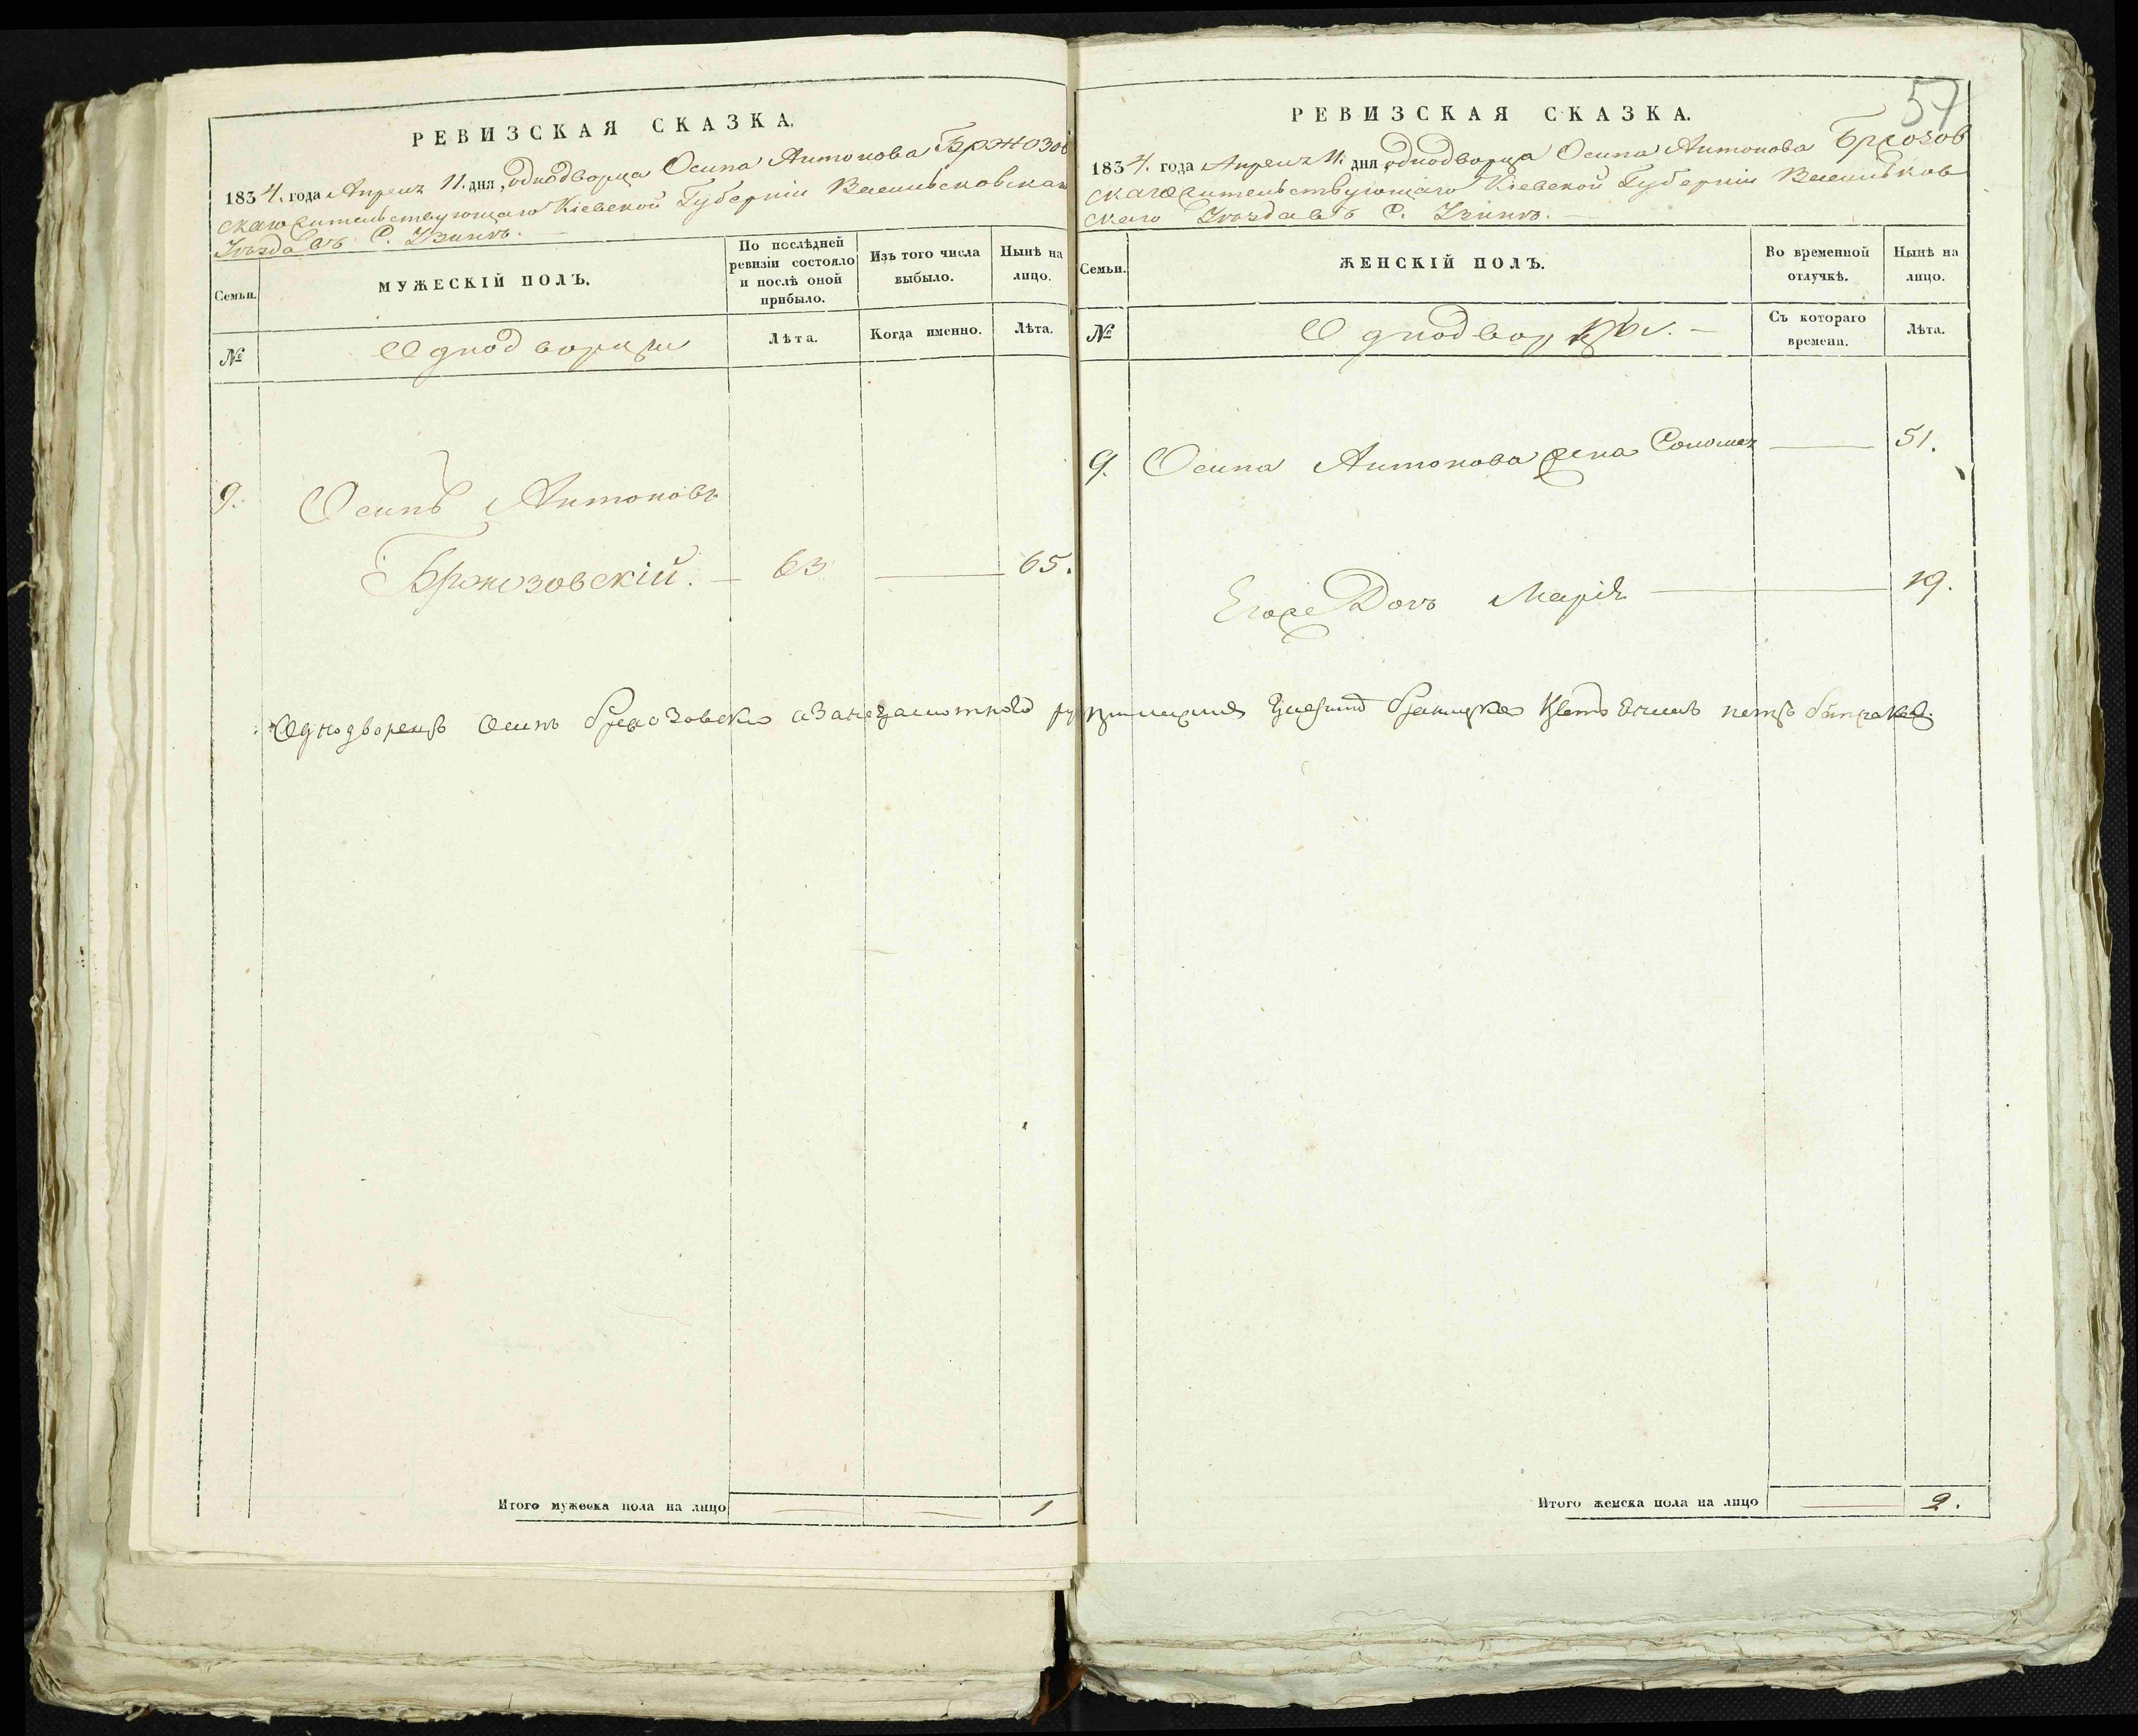 РЕВИЗСКАЯ СКАЗКА.
1834. года Апреля 11. дня, однодворца Осипа Антонова Бржозов
скаго жительствующаго Кіевской Губерніи Васильковскаго
Уѣзда въ С. Узинѣ.
Семьи.
МУЖЕСКІЙ ПОЛЪ.
По послѣдней ревизіи состояло и послѣ оной прибыло.
Изъ того числа выбыло.
Нынѣ на лицо.
№
Однодворцы
Лѣта.
Когда именно.
Лѣта.
9. Осипъ Антоновъ
Бржозовскій. — 63 — 65.
Итого мужеска пола на лицо — — 1
57
РЕВИЗСКАЯ СКАЗКА.
1834. года Апреля 11. дня, однодворца Осипа Антонова Бржозов
скаго жительствующаго Кіевской Губерніи Васильков
скаго Уѣзда въ С. Узинѣ. —
Семьи.
ЖЕНСКІЙ ПОЛЪ.
Во временной отлучкѣ.
Нынѣ на лицо.
№
Однодворцы. —
Съ котораго времена.
Лѣта.
9. Осипа Антонова жена — 51.
Егоже Дочь Марія — 19.
Однодворецъ Осипъ
Итого женска пола на лицо — 2.